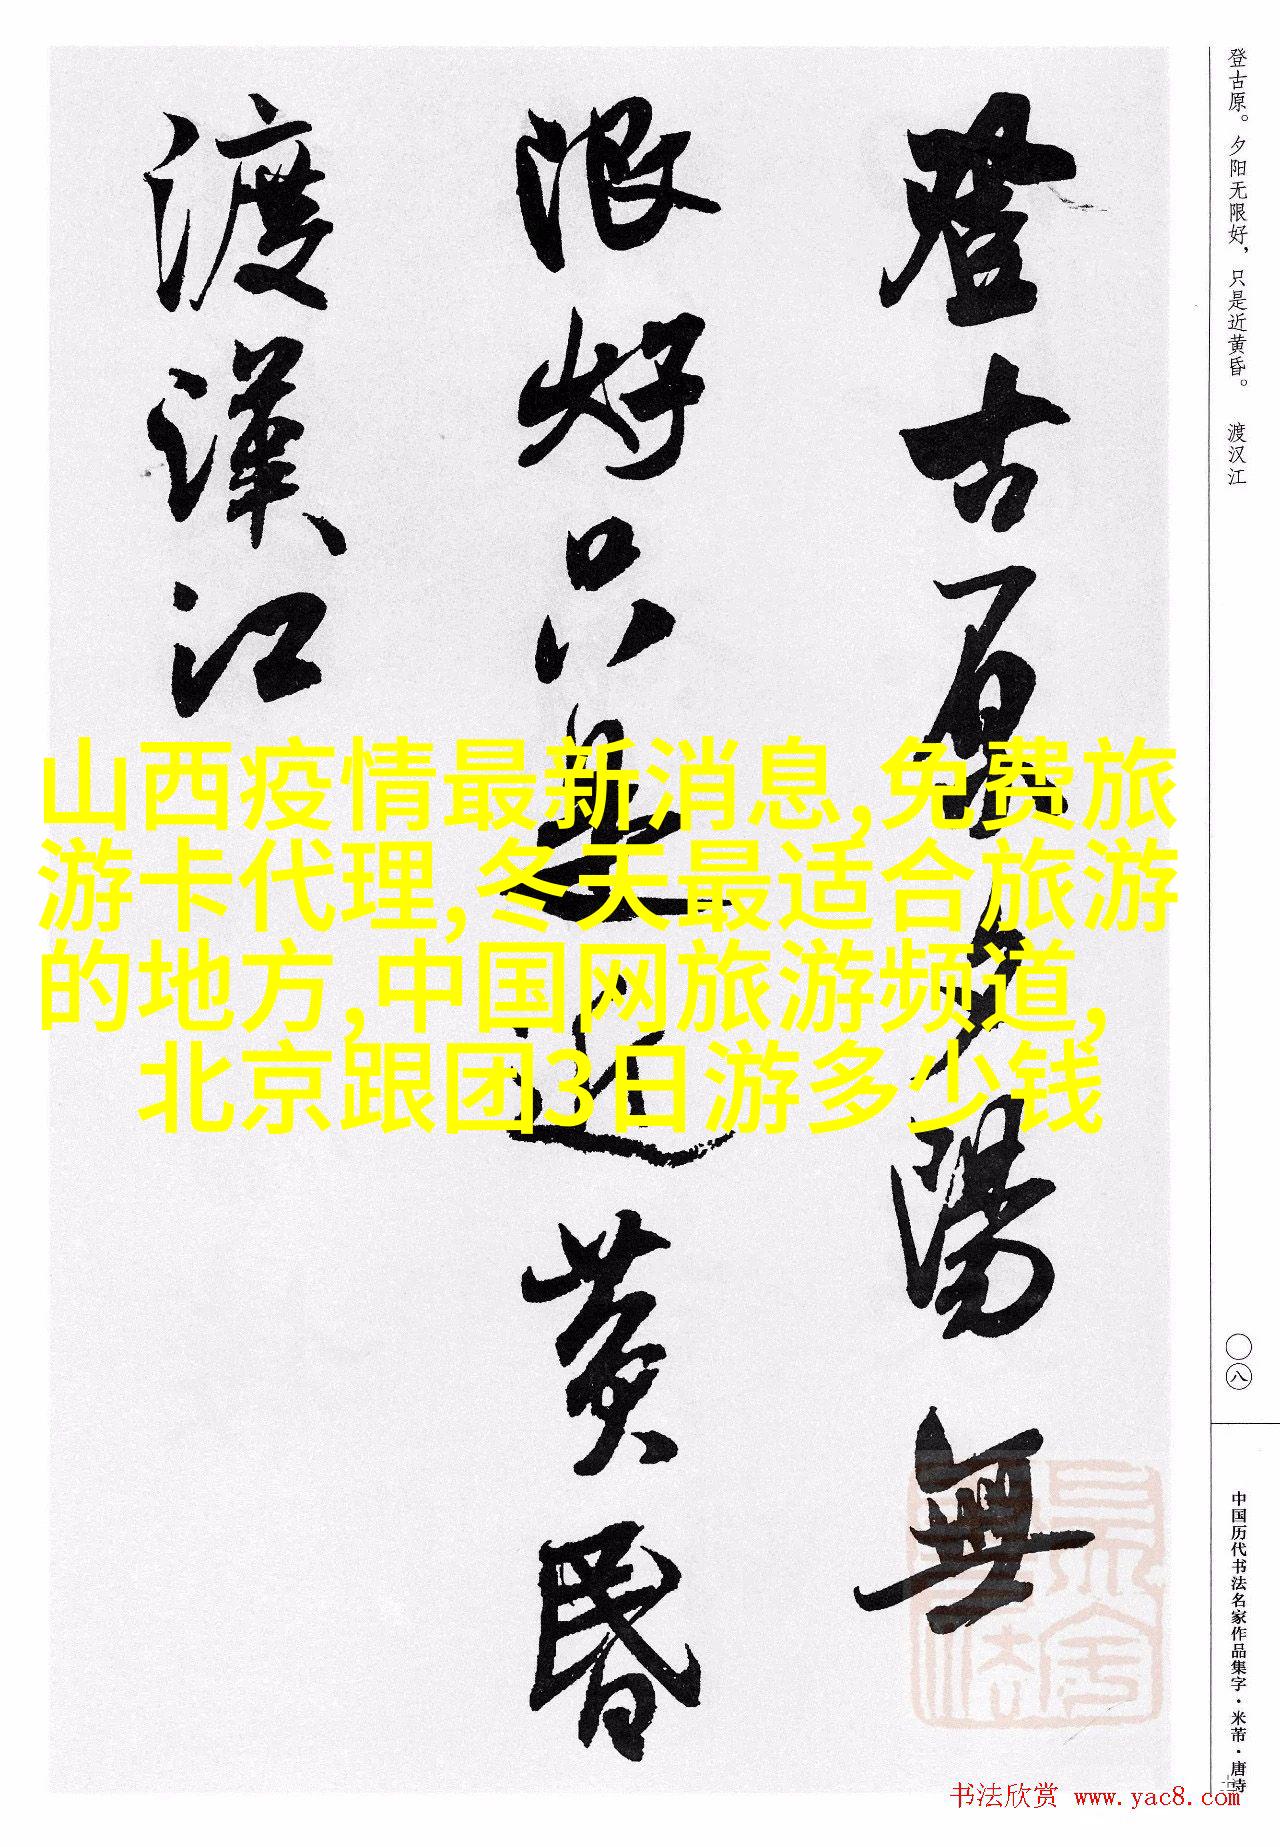 登古原。夕阳无限好，只是近黄昏。 渡汉江
登古原夕陽無
限好只是近黄昏
渡漢江
山西疫情最新消息,免费旅
游卡代理,冬天最适合旅游
的地方,中国网旅游频道,
北京跟团3日游多少钱
〇八
中国历代书法名家作品集字·米芾·唐诗
书法欣赏 www.yac8.com